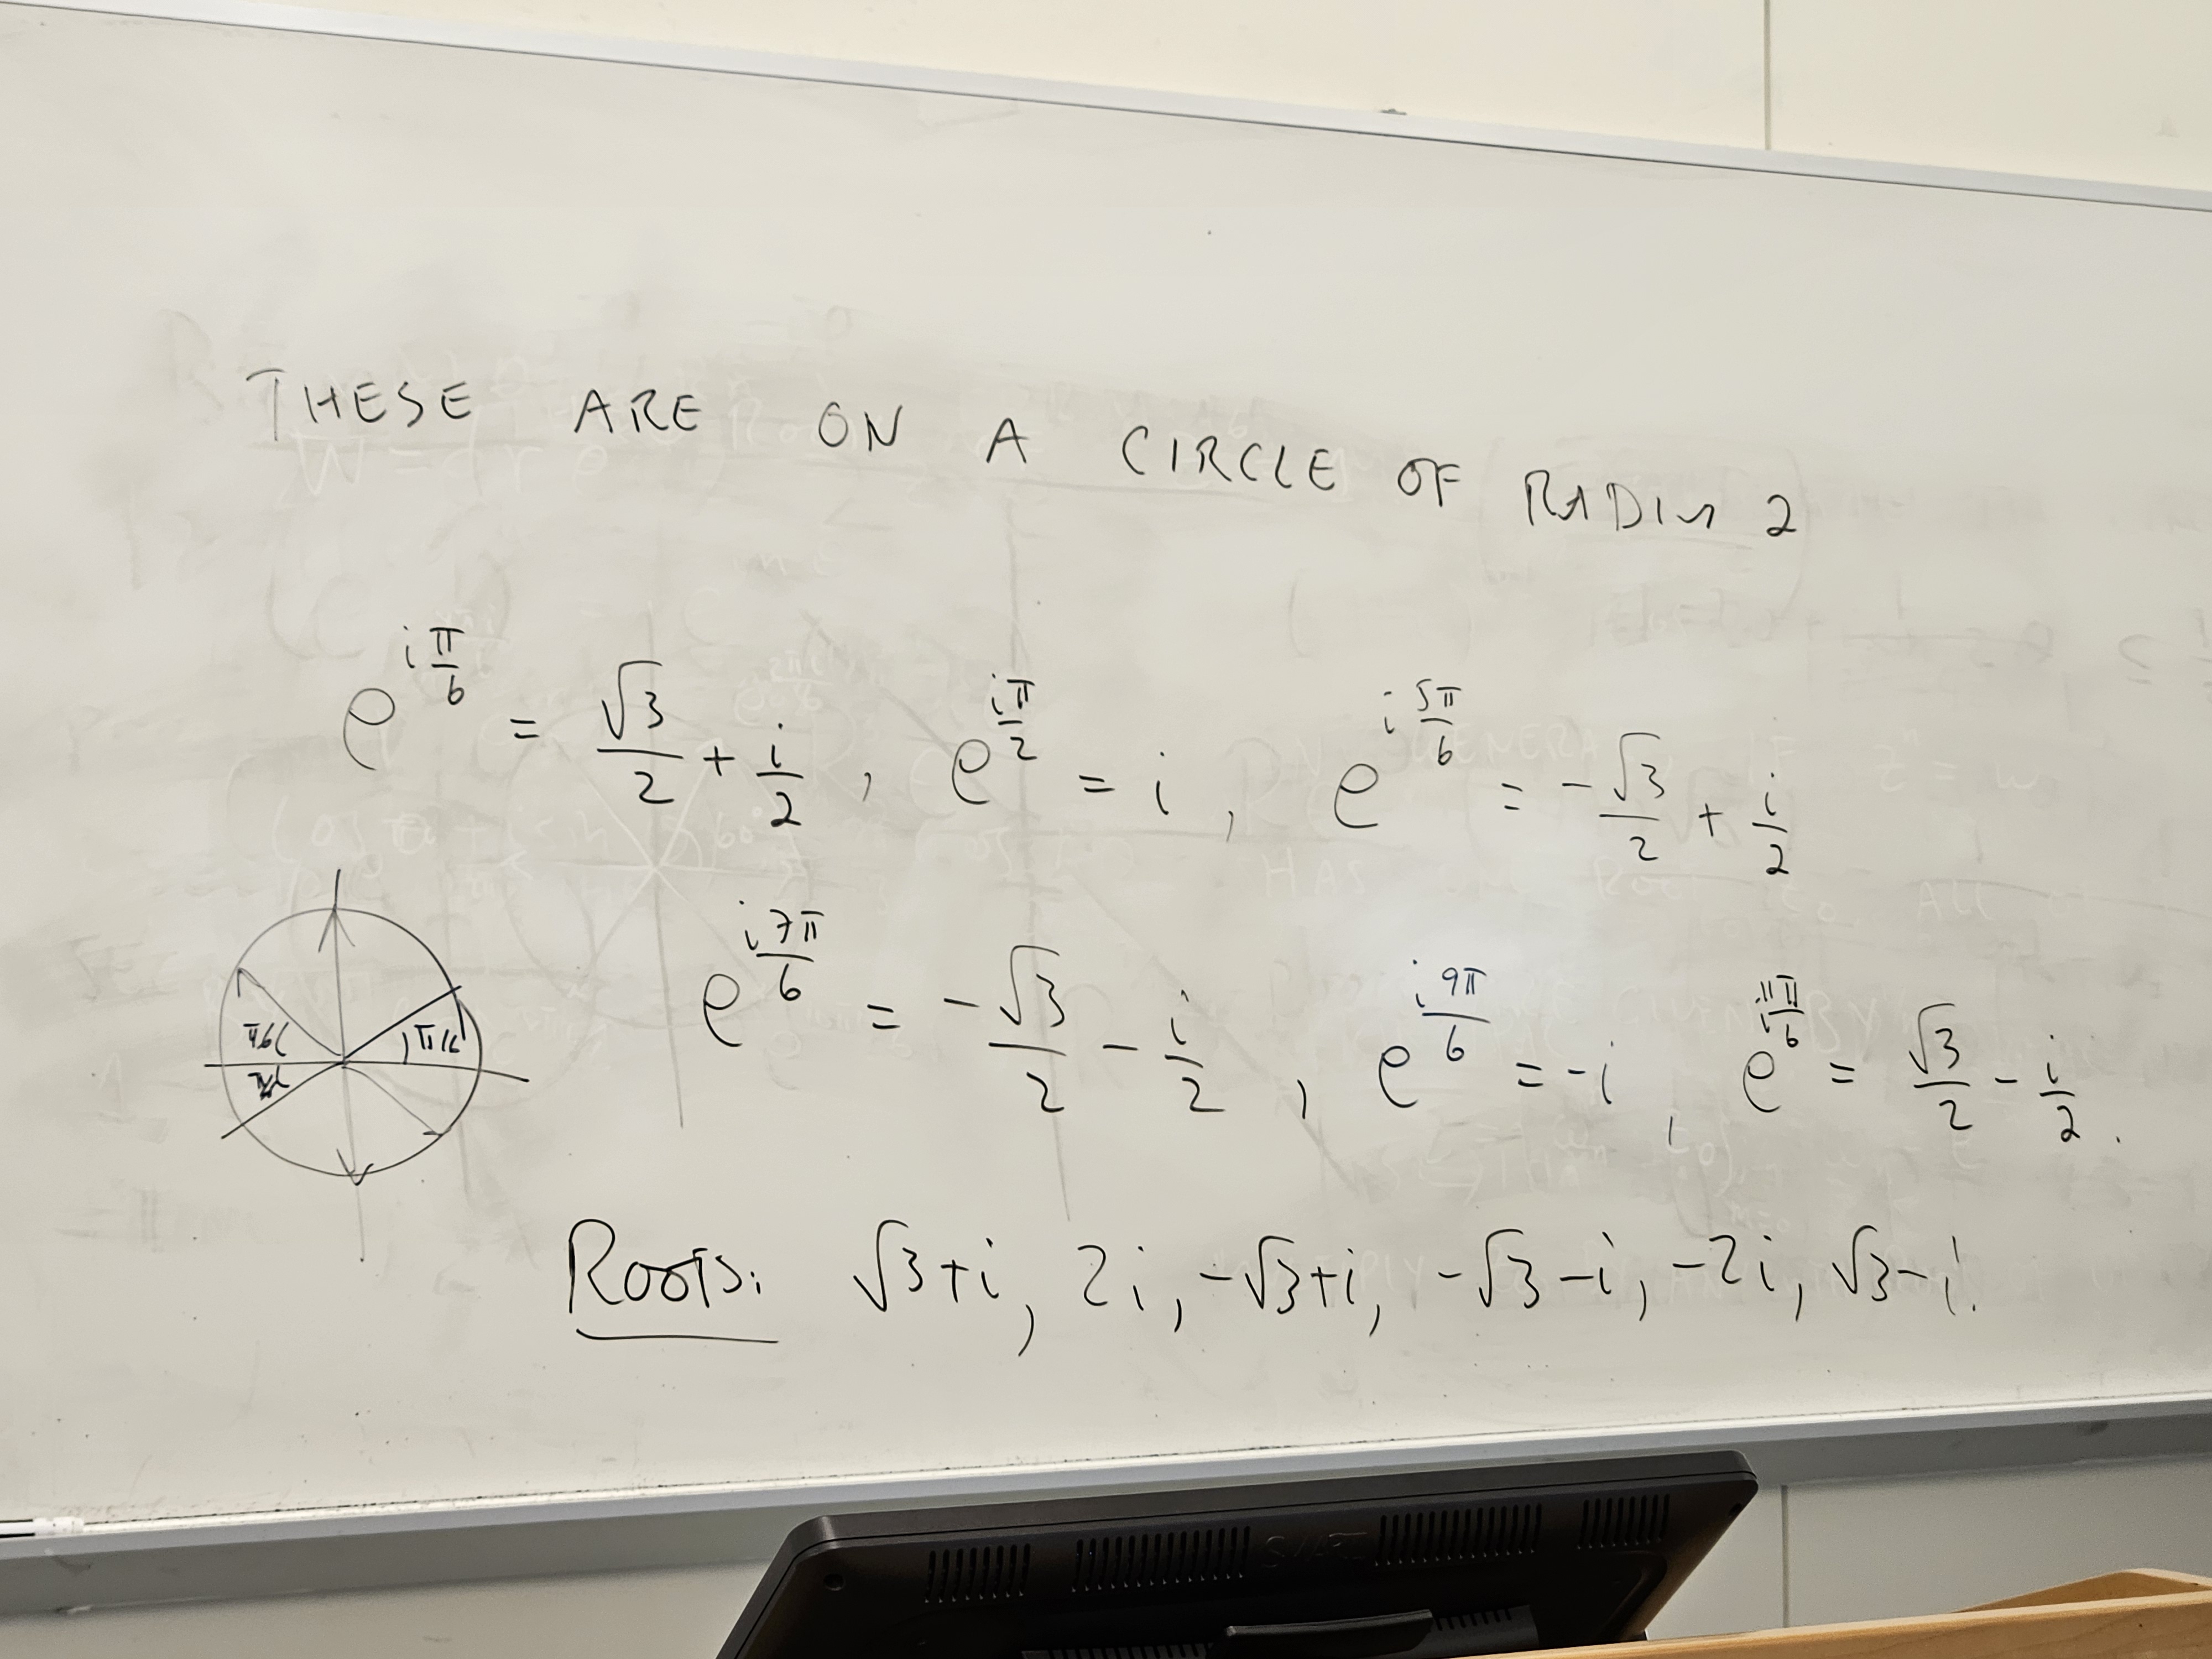 THESE ARE ON A CIRCLE OF RADIUS 2
e^{i π/6} = √3/2 + i/2 , e^{iπ/2} = i , e^{i 5π/6} = -√3/2 + i/2
π/6
π/6
e^{i 7π/6} = -√3/2 - i/2 , e^{i 9π/6} = -i , e^{i 11π/6} = √3/2 - i/2 .
Roots: √3+i, 2i, -√3+i, -√3-i, -2i, √3-i.